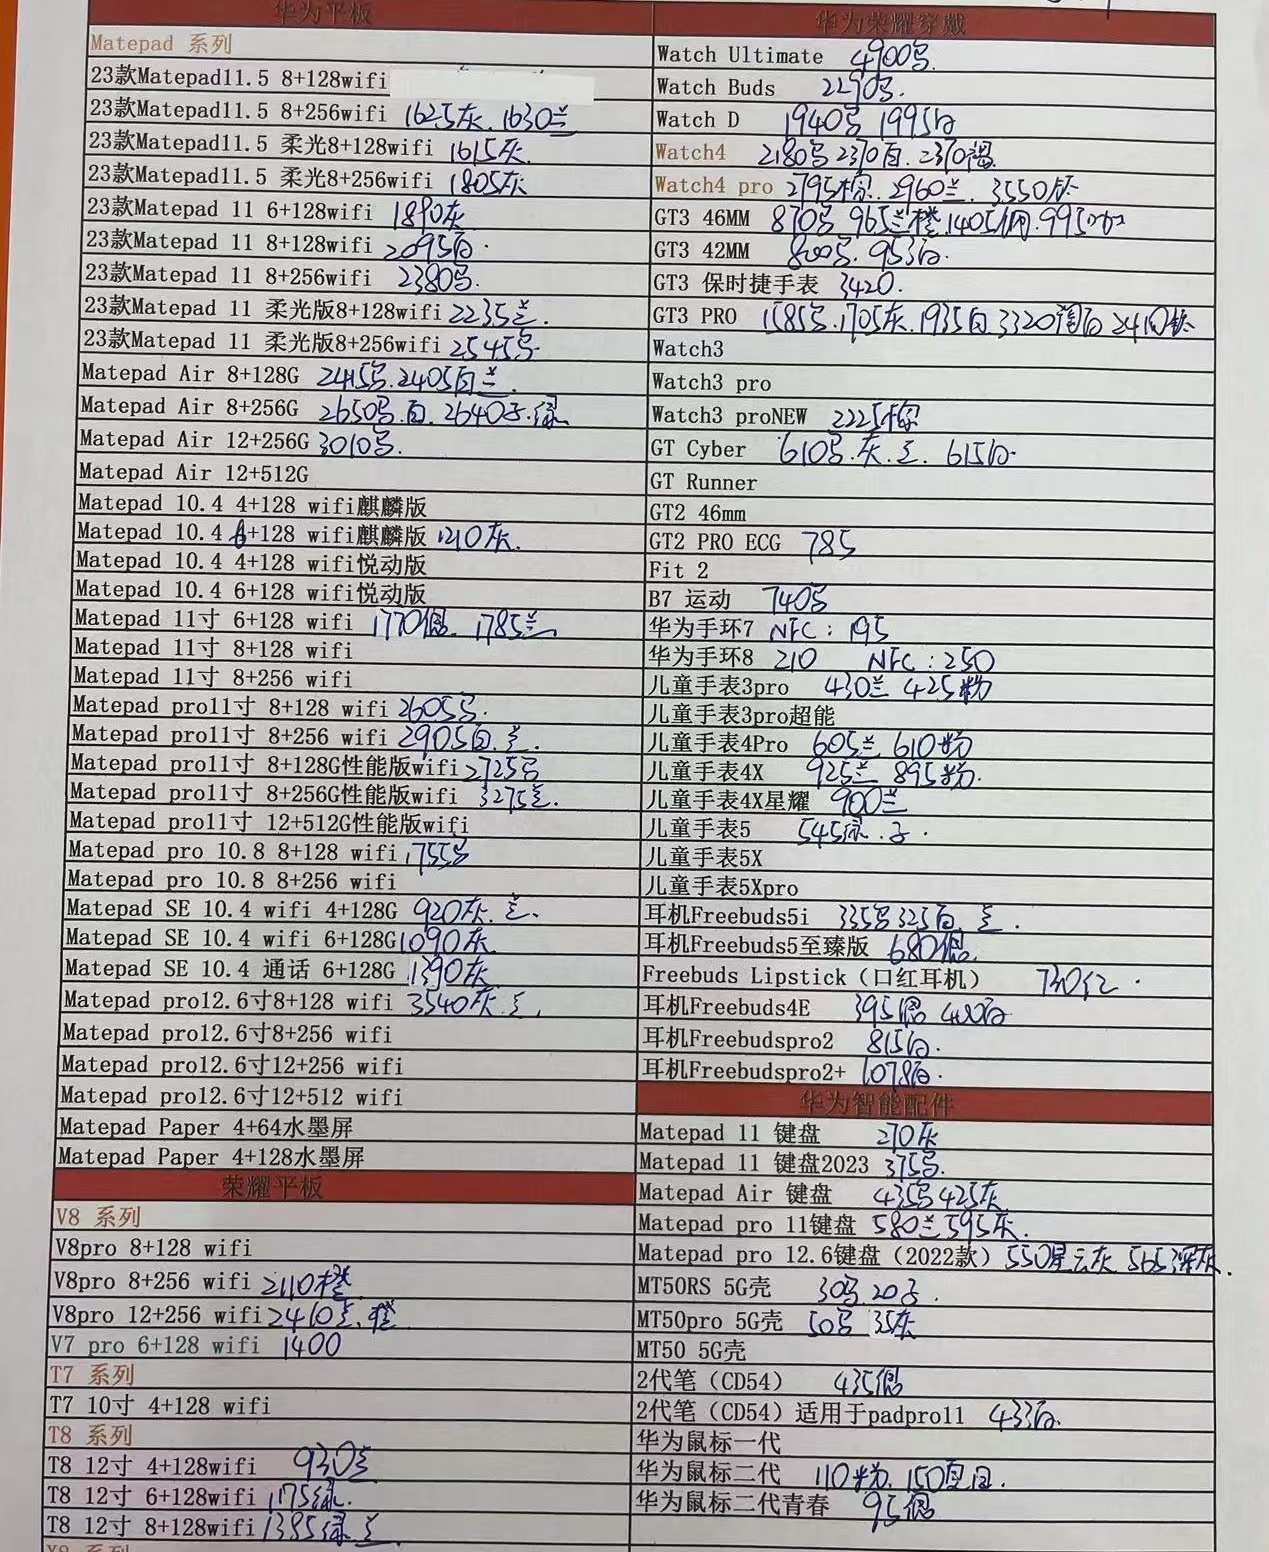 华为平板
Matepad 系列
23款Matepad11.5 8+128wifi
23款Matepad11.5 8+256wifi 1625灰. 1630兰
23款Matepad11.5 柔光8+128wifi 1615灰.
23款Matepad11.5 柔光8+256wifi 1805灰
23款Matepad 11 6+128wifi 1890灰
23款Matepad 11 8+128wifi 2095白.
23款Matepad 11 8+256wifi 2380
23款Matepad 11 柔光版8+128wifi 2235兰.
23款Matepad 11 柔光版8+256wifi 2545
Matepad Air 8+128G 2415 2405白兰.
Matepad Air 8+256G 2650 白. 2640 绿
Matepad Air 12+256G 3010
Matepad Air 12+512G
Matepad 10.4 4+128 wifi麒麟版
Matepad 10.4 6+128 wifi麒麟版 1210灰.
Matepad 10.4 4+128 wifi悦动版
Matepad 10.4 6+128 wifi悦动版
Matepad 11寸 6+128 wifi 1770 1785兰
Matepad 11寸 8+128 wifi
Matepad 11寸 8+256 wifi
Matepad pro11寸 8+128 wifi 2605
Matepad pro11寸 8+256 wifi 2905白.兰.
Matepad pro11寸 8+128G性能版wifi 2725
Matepad pro11寸 8+256G性能版wifi 3275兰.
Matepad pro11寸 12+512G性能版wifi
Matepad pro 10.8 8+128 wifi 1755
Matepad pro 10.8 8+256 wifi
Matepad SE 10.4 wifi 4+128G 920灰.兰.
Matepad SE 10.4 wifi 6+128G 1090灰
Matepad SE 10.4 通话 6+128G 1390灰
Matepad pro12.6寸8+128 wifi 3540灰.兰.
Matepad pro12.6寸8+256 wifi
Matepad pro12.6寸12+256 wifi
Matepad pro12.6寸12+512 wifi
Matepad Paper 4+64水墨屏
Matepad Paper 4+128水墨屏
荣耀平板
V8 系列
V8pro 8+128 wifi
V8pro 8+256 wifi 2110橙
V8pro 12+256 wifi 2410兰.橙
V7 pro 6+128 wifi 1400
T7 系列
T7 10寸 4+128 wifi
T8 系列
T8 12寸 4+128wifi 930兰
T8 12寸 6+128wifi 1175绿.
T8 12寸 8+128wifi 1385绿 兰.
华为荣耀穿戴
Watch Ultimate 4900
Watch Buds 2290
Watch D 1940 1995白
Watch4 2180 2370白. 2370褐
Watch4 pro 2795棕. 2960兰. 3550钛
GT3 46MM 870 965兰橙 1405钢. 995
GT3 42MM 800 953白.
GT3 保时捷手表 3420.
GT3 PRO 1585 1705灰. 1935白 3320陶白
Watch3
Watch3 pro
Watch3 proNEW 2225棕
GT Cyber 610 灰.兰. 615白.
GT Runner
GT2 46mm
GT2 PRO ECG 785
Fit 2
B7 运动 740
华为手环7 NFC：195
华为手环8 210 NFC：250
儿童手表3pro 430兰 425粉
儿童手表3pro超能
儿童手表4Pro 605兰 610粉
儿童手表4X 925兰 895粉.
儿童手表4X星耀 900兰
儿童手表5 545绿.
儿童手表5X
儿童手表5Xpro
耳机Freebuds5i 335 325白.兰.
耳机Freebuds5至臻版 680
Freebuds Lipstick（口红耳机） 730红.
耳机Freebuds4E 395 400白
耳机Freebudspro2 815白.
耳机Freebudspro2+ 1078白.
华为智能配件
Matepad 11 键盘 270灰
Matepad 11 键盘2023 375
Matepad Air 键盘 435 425灰
Matepad pro 11键盘 580兰 595灰.
Matepad pro 12.6键盘（2022款） 550星云灰 565深灰.
MT50RS 5G壳 30 20
MT50pro 5G壳 50 35灰
MT50 5G壳
2代笔（CD54） 435
2代笔（CD54）适用于padpro11 433白.
华为鼠标一代
华为鼠标二代 110粉. 150
华为鼠标二代青春 95